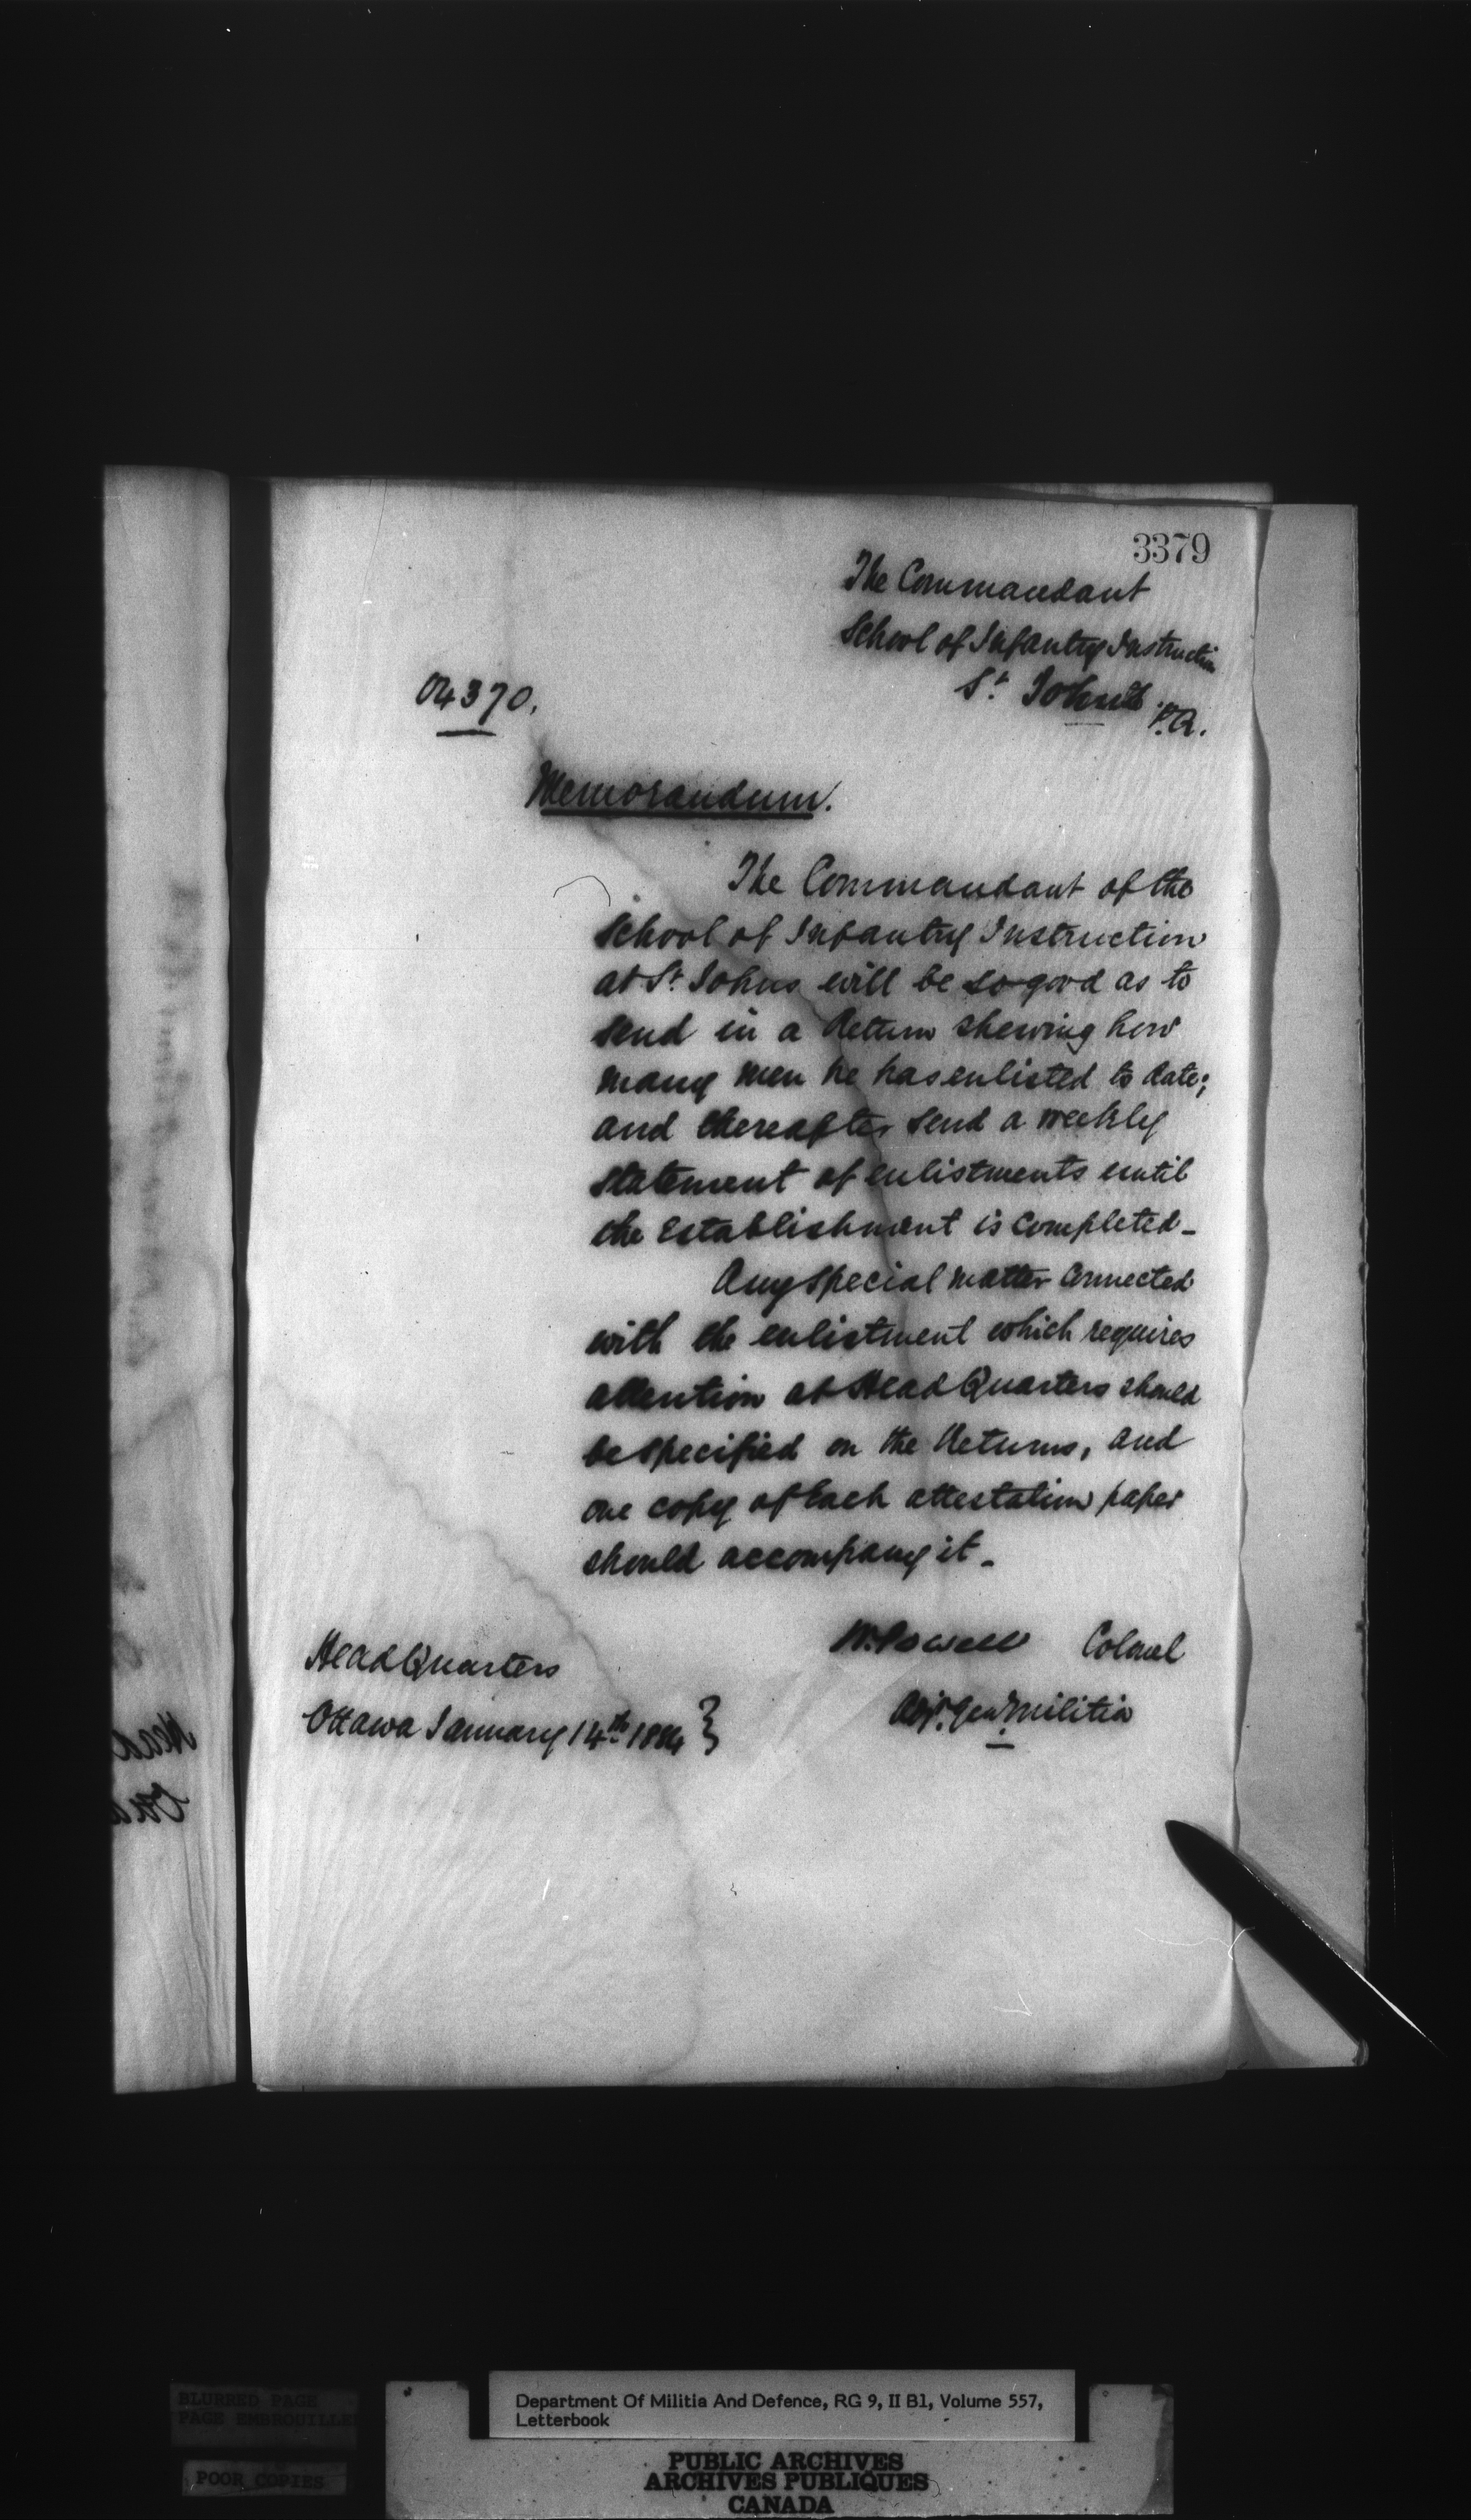 3379
The Commandant
School of Infantry Instruction
St Johns P.Q.
04370.
Memorandum.
The Commandant of the
School of Infantry Instruction
at St Johns will be so good as to
send in a Return shewing how
many men he has enlisted to date;
and thereafter send a weekly
statement of enlistments until
the Establishment is completed_
Any special matter connected
with the enlistment which requires
attention at Head Quarters should
be specified on the Returns, and
one copy of each attestation paper
should accompany it_
W. Powell Colonel
Adjt. Genl Militia
Head Quarters
Ottawa January 14th 1884 }
BLURRED PAGE
PAGE EMBROUILLEE
POOR COPIES
Department Of Militia And Defence, RG 9, II B1, Volume 557,
Letterbook
PUBLIC ARCHIVES
ARCHIVES PUBLIQUES
CANADA